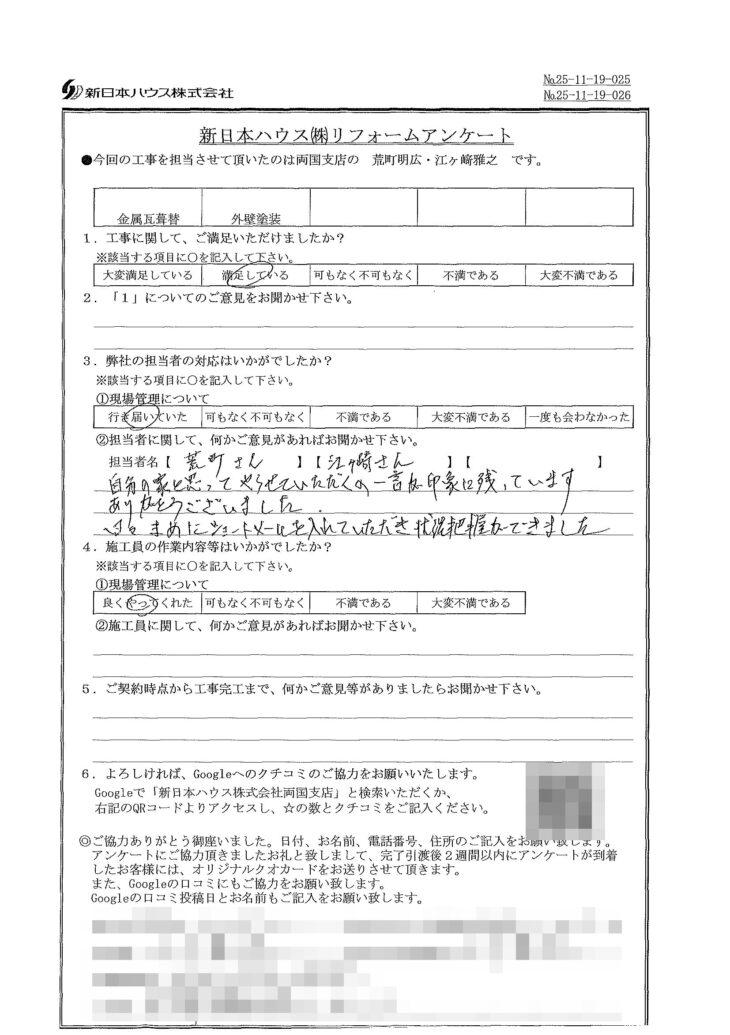 新日本ハウス株式会社
№25-11-19-025
№25-11-19-026
新日本ハウス㈱リフォームアンケート
●今回の工事を担当させて頂いたのは両国支店の 荒町明広・江ヶ﨑雅之 です。
金属瓦葺替 外壁塗装
1．工事に関して、ご満足いただけましたか？
※該当する項目に〇を記入して下さい。
大変満足している 満足している 可もなく不可もなく 不満である 大変不満である
2．「1」についてのご意見をお聞かせ下さい。
3．弊社の担当者の対応はいかがでしたか？
※該当する項目に〇を記入して下さい。
①現場管理について
行き届いていた 可もなく不可もなく 不満である 大変不満である 一度も会わなかった
②担当者に関して、何かご意見があればお聞かせ下さい。
担当者名【 荒町さん 】【 江ヶ崎さん 】【 】
自分の家と思ってやらせていただくの一言が印象に残っています
ありがとうございました．
まめにショートメールを入れていただき状況把握ができました
4．施工員の作業内容等はいかがでしたか？
※該当する項目に〇を記入して下さい。
①現場管理について
良くやってくれた 可もなく不可もなく 不満である 大変不満である
②施工員に関して、何かご意見があればお聞かせ下さい。
5．ご契約時点から工事完工まで、何かご意見等がありましたらお聞かせ下さい。
6．よろしければ、Googleへのクチコミのご協力をお願いいたします。
Googleで「新日本ハウス株式会社両国支店」と検索いただくか、
右記のQRコードよりアクセスし、☆の数とクチコミをご記入ください。
◎ご協力ありがとう御座いました。日付、お名前、電話番号、住所のご記入をお願い致します。
アンケートにご協力頂きましたお礼と致しまして、完了引渡後２週間以内にアンケートが到着
したお客様には、オリジナルクオカードをお送りさせて頂きます。
また、Googleの口コミにもご協力をお願い致します。
Googleの口コミ投稿日とお名前もご記入をお願い致します。